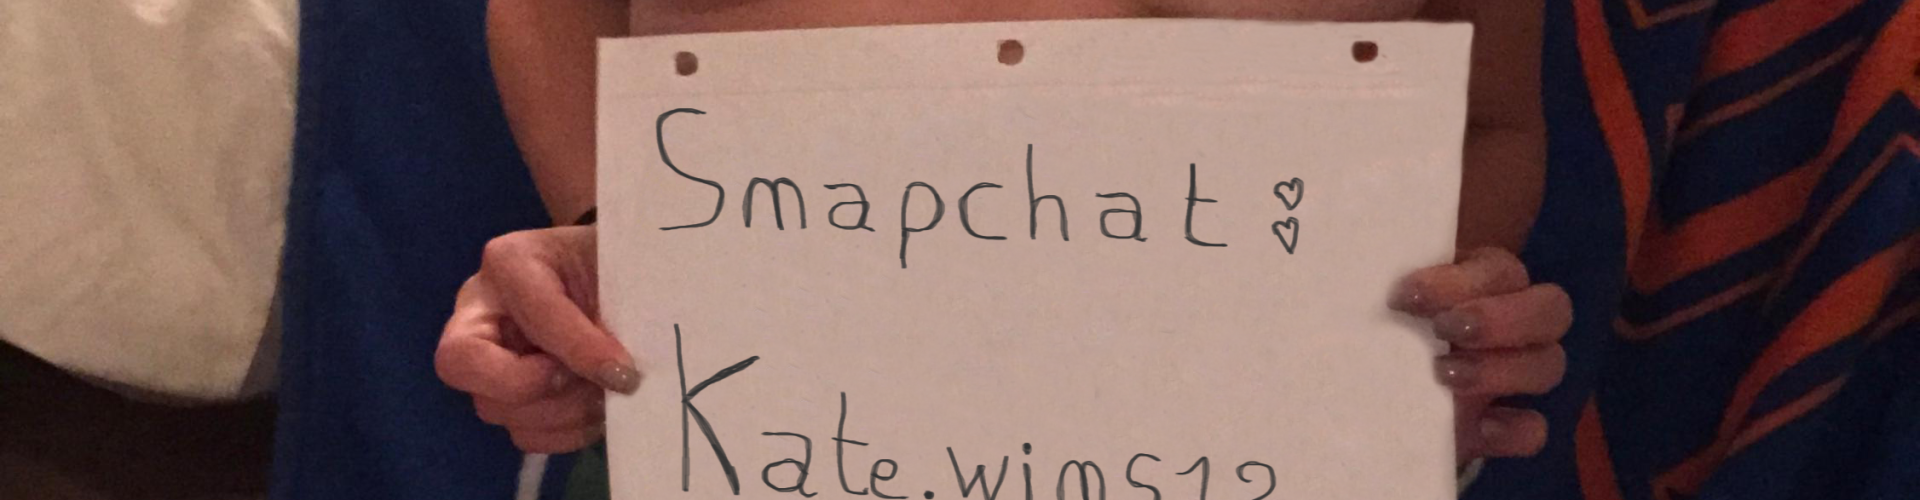 Smapchat:
Kate.wims12